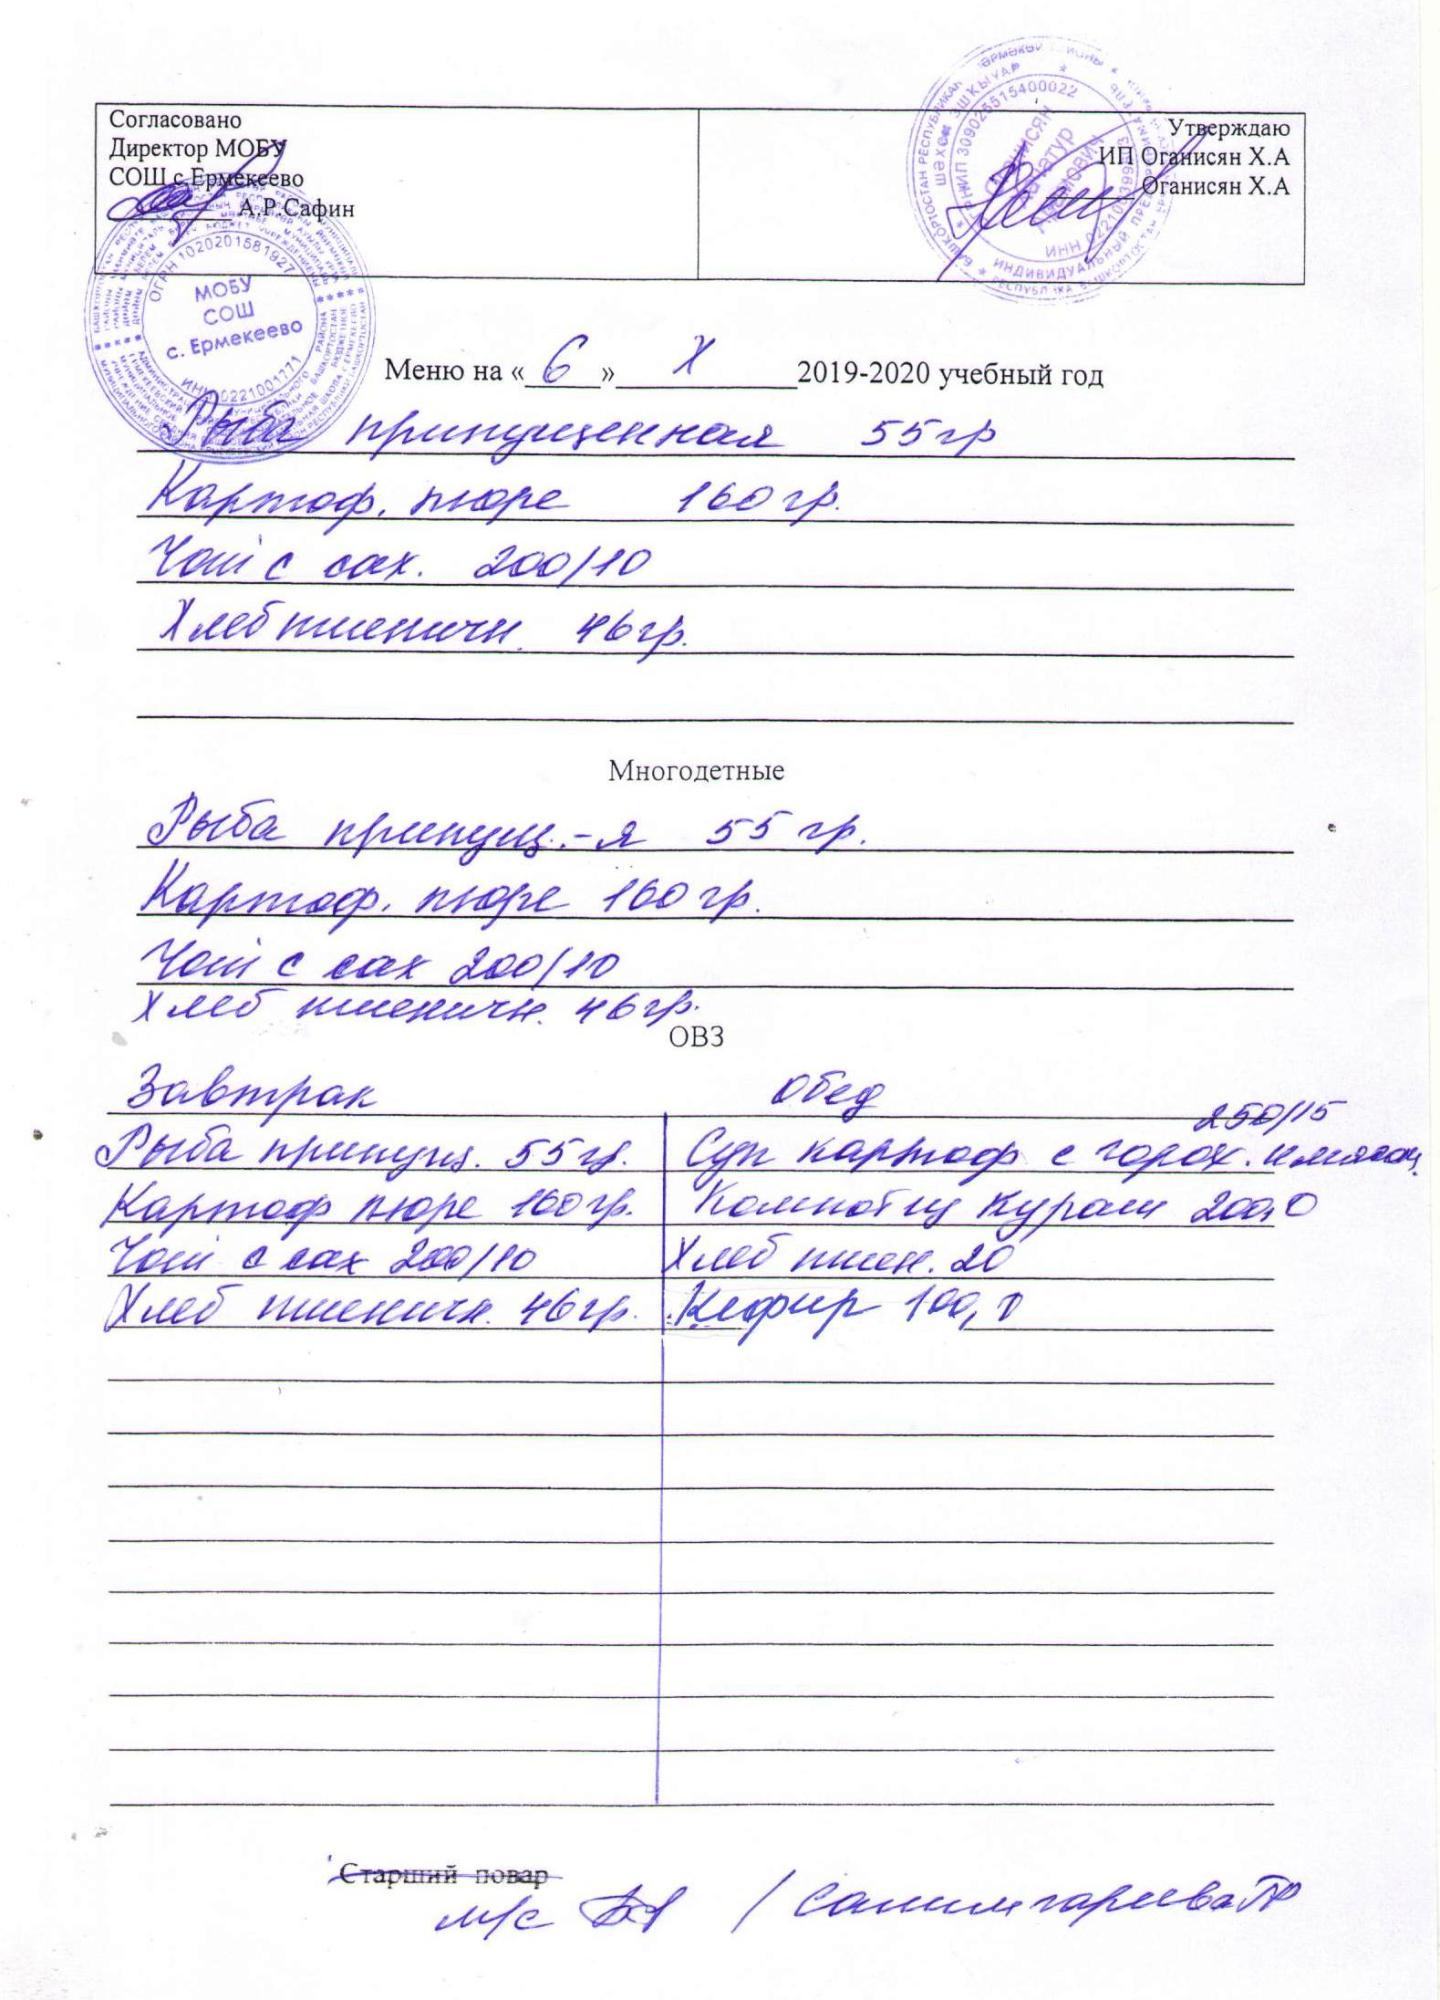 Согласовано
Директор МОБУ
СОШ с.Ермекеево
А.Р.Сафин
Утверждаю
ИП Оганисян Х.А
Оганисян Х.А
ОГРН 1020201581927
МОБУ
СОШ
с. Ермекеево
ИНН 0221001771
ИНДИВИДУАЛЬНЫЙ
Меню на « 6 » X 2019-2020 учебный год
Рыба припущенная 55гр
Картоф. пюре 160 гр.
Чай с сах. 200/10
Хлеб пшеничн. 46гр.
Многодетные
Рыба припущ.-я 55 гр.
Картоф. пюре 160 гр.
Чай с сах 200/10
Хлеб пшеничн. 46гр.
ОВЗ
Завтрак
Рыба припущ. 55гр.
Картоф пюре 160гр.
Чай с сах 200/10
Хлеб пшеничн. 46гр.
Обед
250/15
Суп картоф с горох. и мясом
Компот 200,0
Хлеб пшен. 20
Кефир 100,0
Старший повар
м/с / Салимгареева